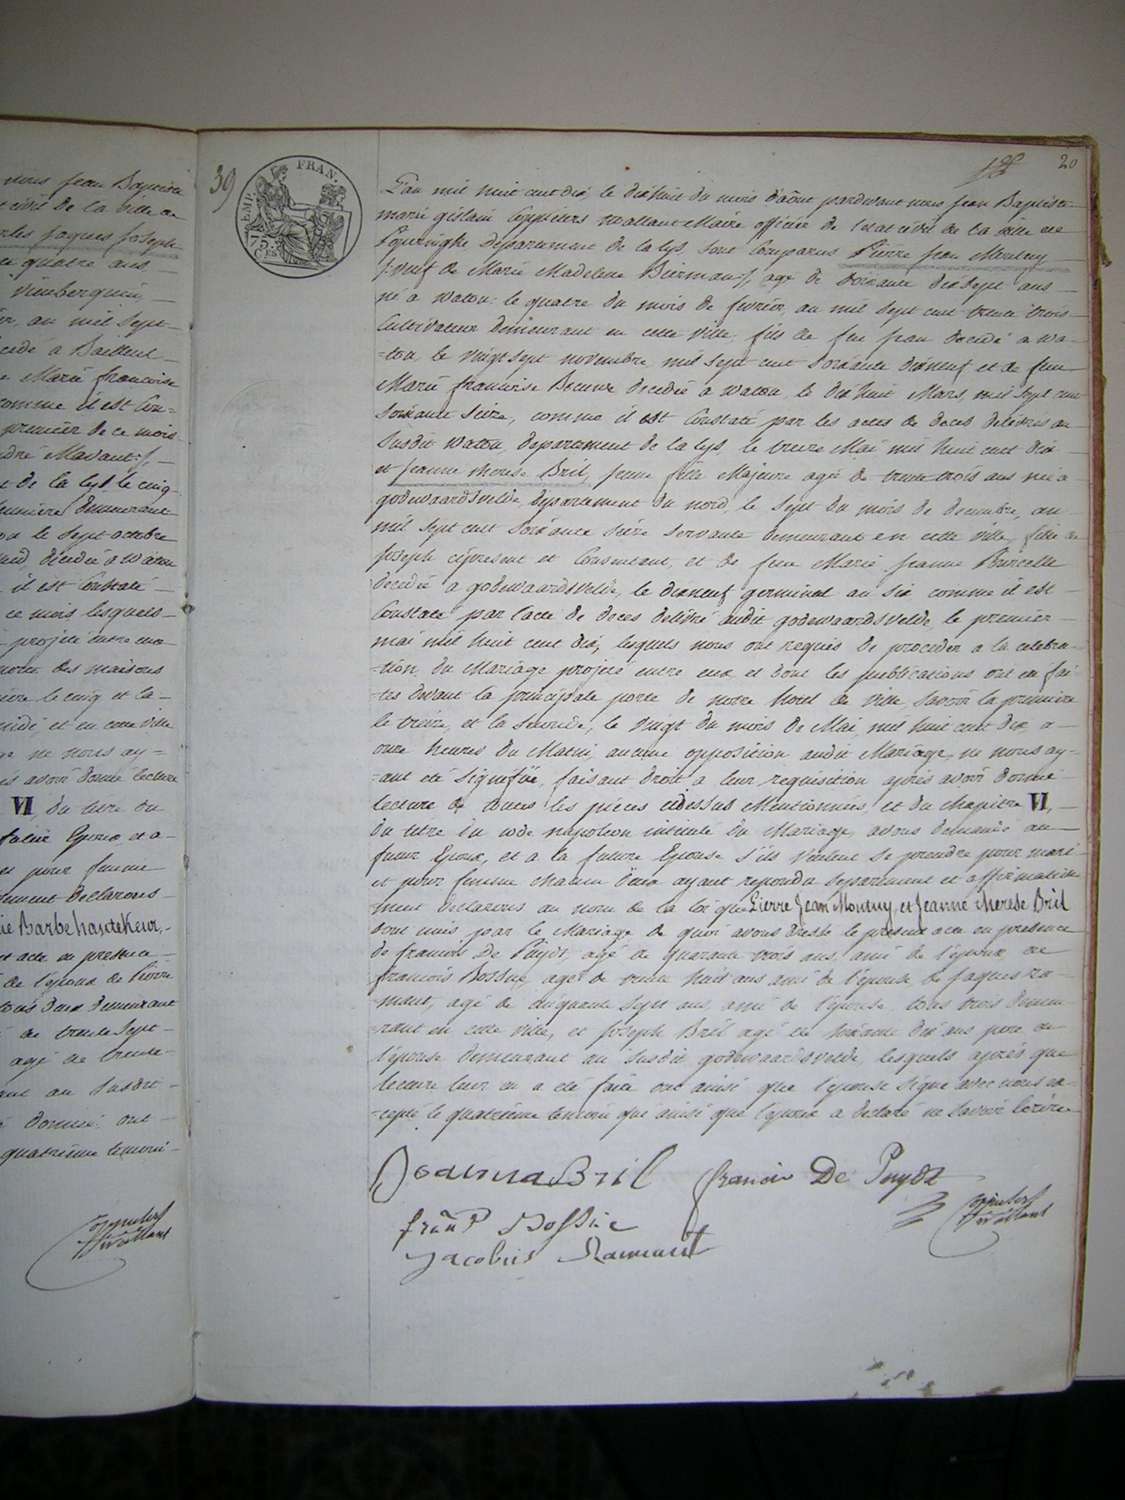 vous jean Baptiste
civil de la ville de
Jaques Joseph
quatre ans
au mil sept
décédé à Bailleul
Marie francoise
comme il est Con-
premier de ce mois
de la lys le cinq
demeurant
le sept octobre
décédé a Watou
il est Constaté
ce mois lesquels
projeté entre eux
des maisons
le cinq et la
et en cette ville
ne nous ay-
avoir donné lecture
VI, du titre du
futur Epoux et a
et pour femme
declarons
Barbe hautekeur,
acte en presence
de l'epoux de Pierre
tous deux demeurant
de trente sept
agé de trente
au susdit
donné ont
quatrième temoin
39
TIMP. FRAN.
75 Ces
20
L'an mil huit cent dix, le dixhuit du mois d'août pardevant nous jean Baptiste
marie gislain Coppieters Wallant Maire officier de l'etat civil de la ville de
Poperinghe Departement de la lys, sont Comparus Pierre Jean Montuy
veuf de Marie Madeleine agé de soixante dixsept ans
né a watou le quatre du mois de fevrier, an mil sept cent trente trois
Cultivateur demeurant en cette ville, fils de feu jean decedé a wa-
=tou le vingt sept novembre mil sept cent soixante dixneuf et de feue
Marie francoise decedée a watou, le dix huit Mars mil sept cent
soixante seize, comme il est Constaté par les actes de deces delivrés au
susdit watou, departement de la lys, le treize Mai mil huit cent dix
et jeanne therese Bril, jeune fille Majeure agé de trente trois ans née a
godewaardsvelde, departement du nord, le sept du mois de decembre, an
mil sept cent soixante seize servante demeurant en cette ville, fille de
Joseph ci present et Consentant, et de feue Marie jeanne
decedée a godewaardsvelde, le dixneuf germinal an six comme il est
Constaté par l'acte de deces delivré audit godewaardsvelde, le premier
mai mil huit cent dix, lesquels nous ont requis de proceder a la celebra-
=tion du Mariage projeté entre eux et dont les publications ont eté fai-
=tes devant la principale porte de notre hotel de ville, savoir la premiere
le treize, et la seconde, le vingt du mois de Mai, mil huit cent dix, a
onze heures du Matin, aucune opposition audit Mariage, ne nous ay-
=ant été signifiée, faisant droit a leur requisition après avoir donné
lecture de toutes les pièces cidessus Mentionnées, et du chapitre VI,
du titre du code napoleon intitulé du Mariage, avons demandé au
futur Epoux, et a la future Epouse s'ils veulent se prendre pour mari
et pour femme chacun d'eux ayant repondu separement et affirmative
ment declarons au nom de la loi que Pierre Jean Montuy, et Jeanne therese Bril
sont unis par le Mariage de quoi avons dressé le present acte en presence
de francois De Puydt, agé de quarante trois ans ami de l'epoux, de
francois Bossue, agé de trente huit ans ami de l'epouse de jaques ra-
=maut, agé de cinquante sept ans, ami de l'epouse tous trois demeu-
=rant en cette ville, et Joseph Bril agé de soixante dix ans pere de
l'epouse demeurant au susdit godewaardsvelde, lesquels après que
lecture leur en a été faite ont ainsi que l'epouse signé avec nous ex-
=cepté le quatrième temoin qui ainsi que l'epoux a declaré ne savoir Ecrire
Joanna Bril francois De Puydt
frans Bossue
Jacobus Ramaut